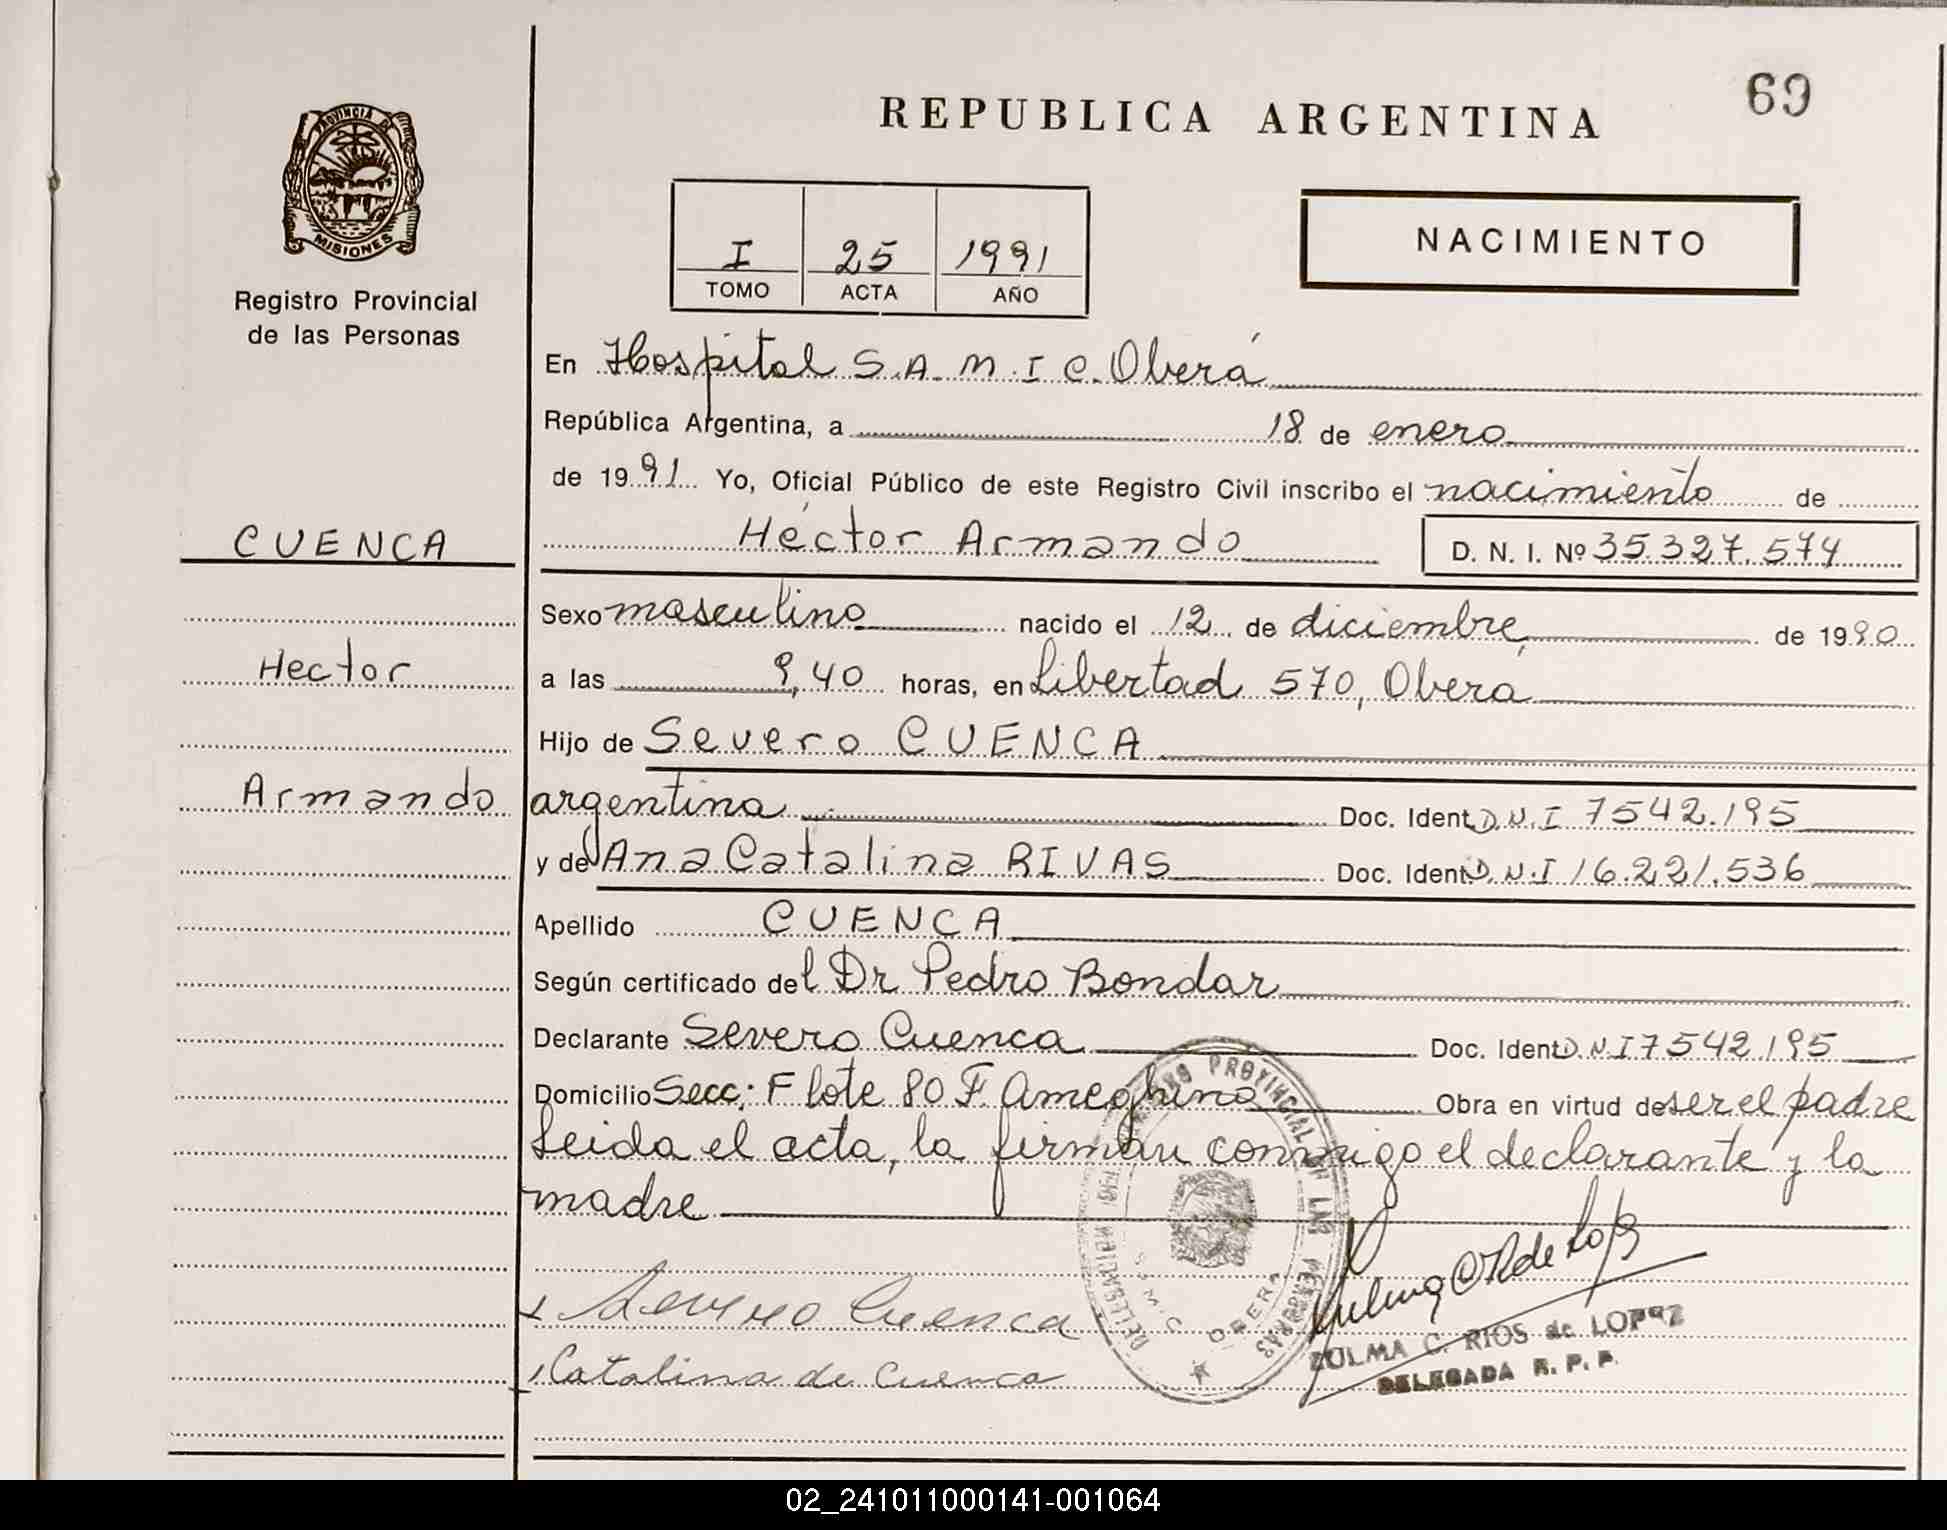 69
REPUBLICA ARGENTINA
PROVINCIA DE
MISIONES
Registro Provincial
de las Personas
I 25 1991
TOMO ACTA AÑO
NACIMIENTO
En Hospital S.A.M.I.C. Oberá
República Argentina, a 18 de enero
de 1991 Yo, Oficial Público de este Registro Civil inscribo el nacimiento de
CUENCA
Héctor Armando D. N. I. Nº 35.327.574
Sexo masculino nacido el 12 de diciembre de 1990
Hector
a las 9,40 horas, en Libertad 570, Oberá
Hijo de Severo CUENCA
Armando
argentina Doc. Ident D.N.I 7542.195
y de Ana Catalina RIVAS Doc. Ident D.N.I 16.221.536
Apellido CUENCA
Según certificado del Dr Pedro Bondar
Declarante Severo Cuenca Doc. Ident D.N.I 7542.195
Domicilio Secc: F lote 80 F. Ameghino Obra en virtud de ser el padre
Leida el acta, la firman conmigo el declarante y la
madre
Severo Cuenca
Catalina de Cuenca
PROVINCIAL DE LAS PERSONAS
DELEGACION
OBERA
Zulma C R de Lopez
ZULMA C. RIOS de LOPEZ
DELEGADA R. P. P.
02_241011000141-001064